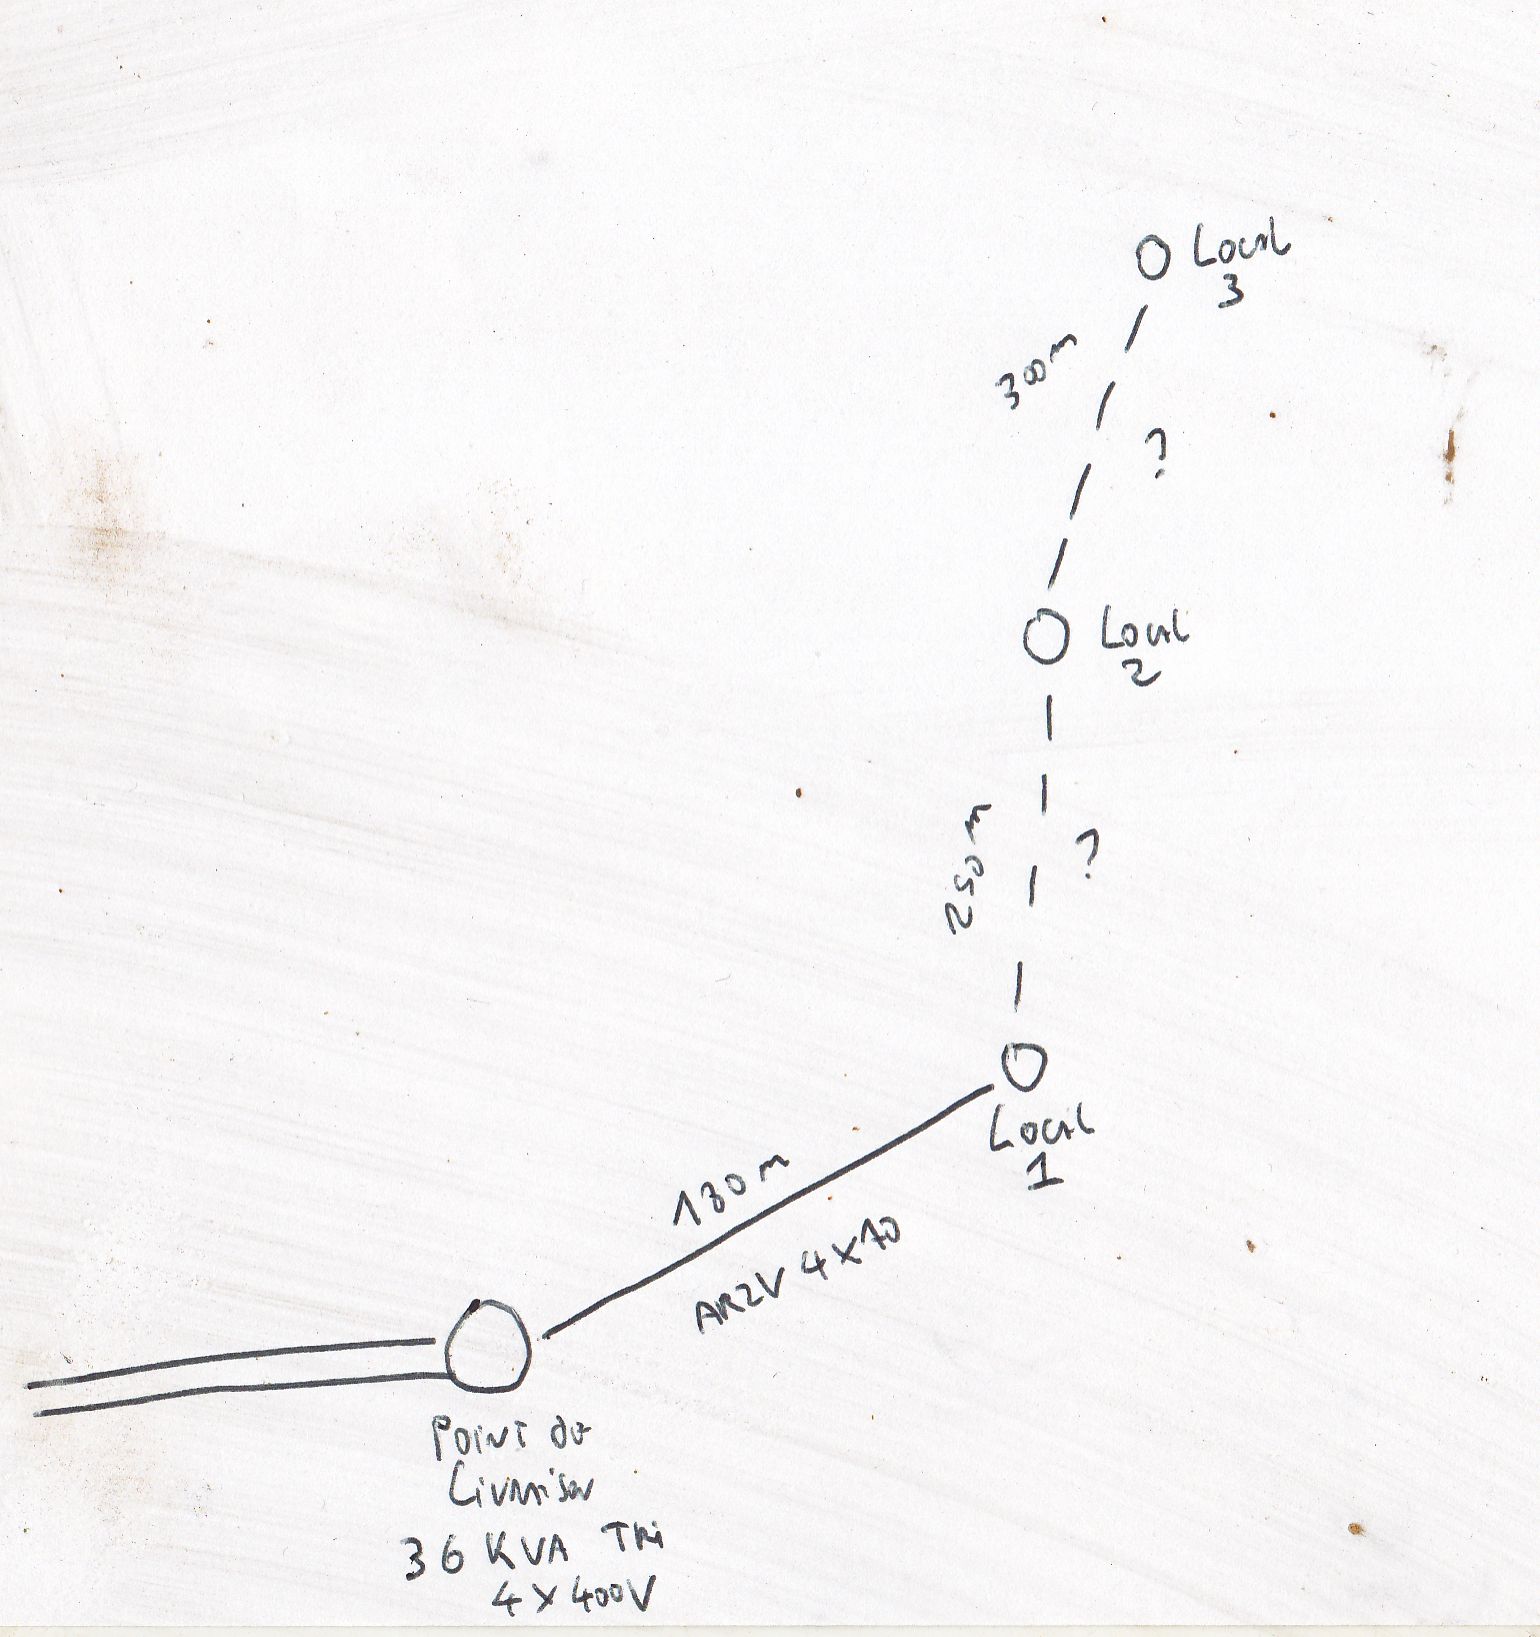 Local
3
300m
?
Local
2
250m
?
Local
1
130m
AR2V 4x70
Point de
Livraison
36 KVA TRi
4x400V